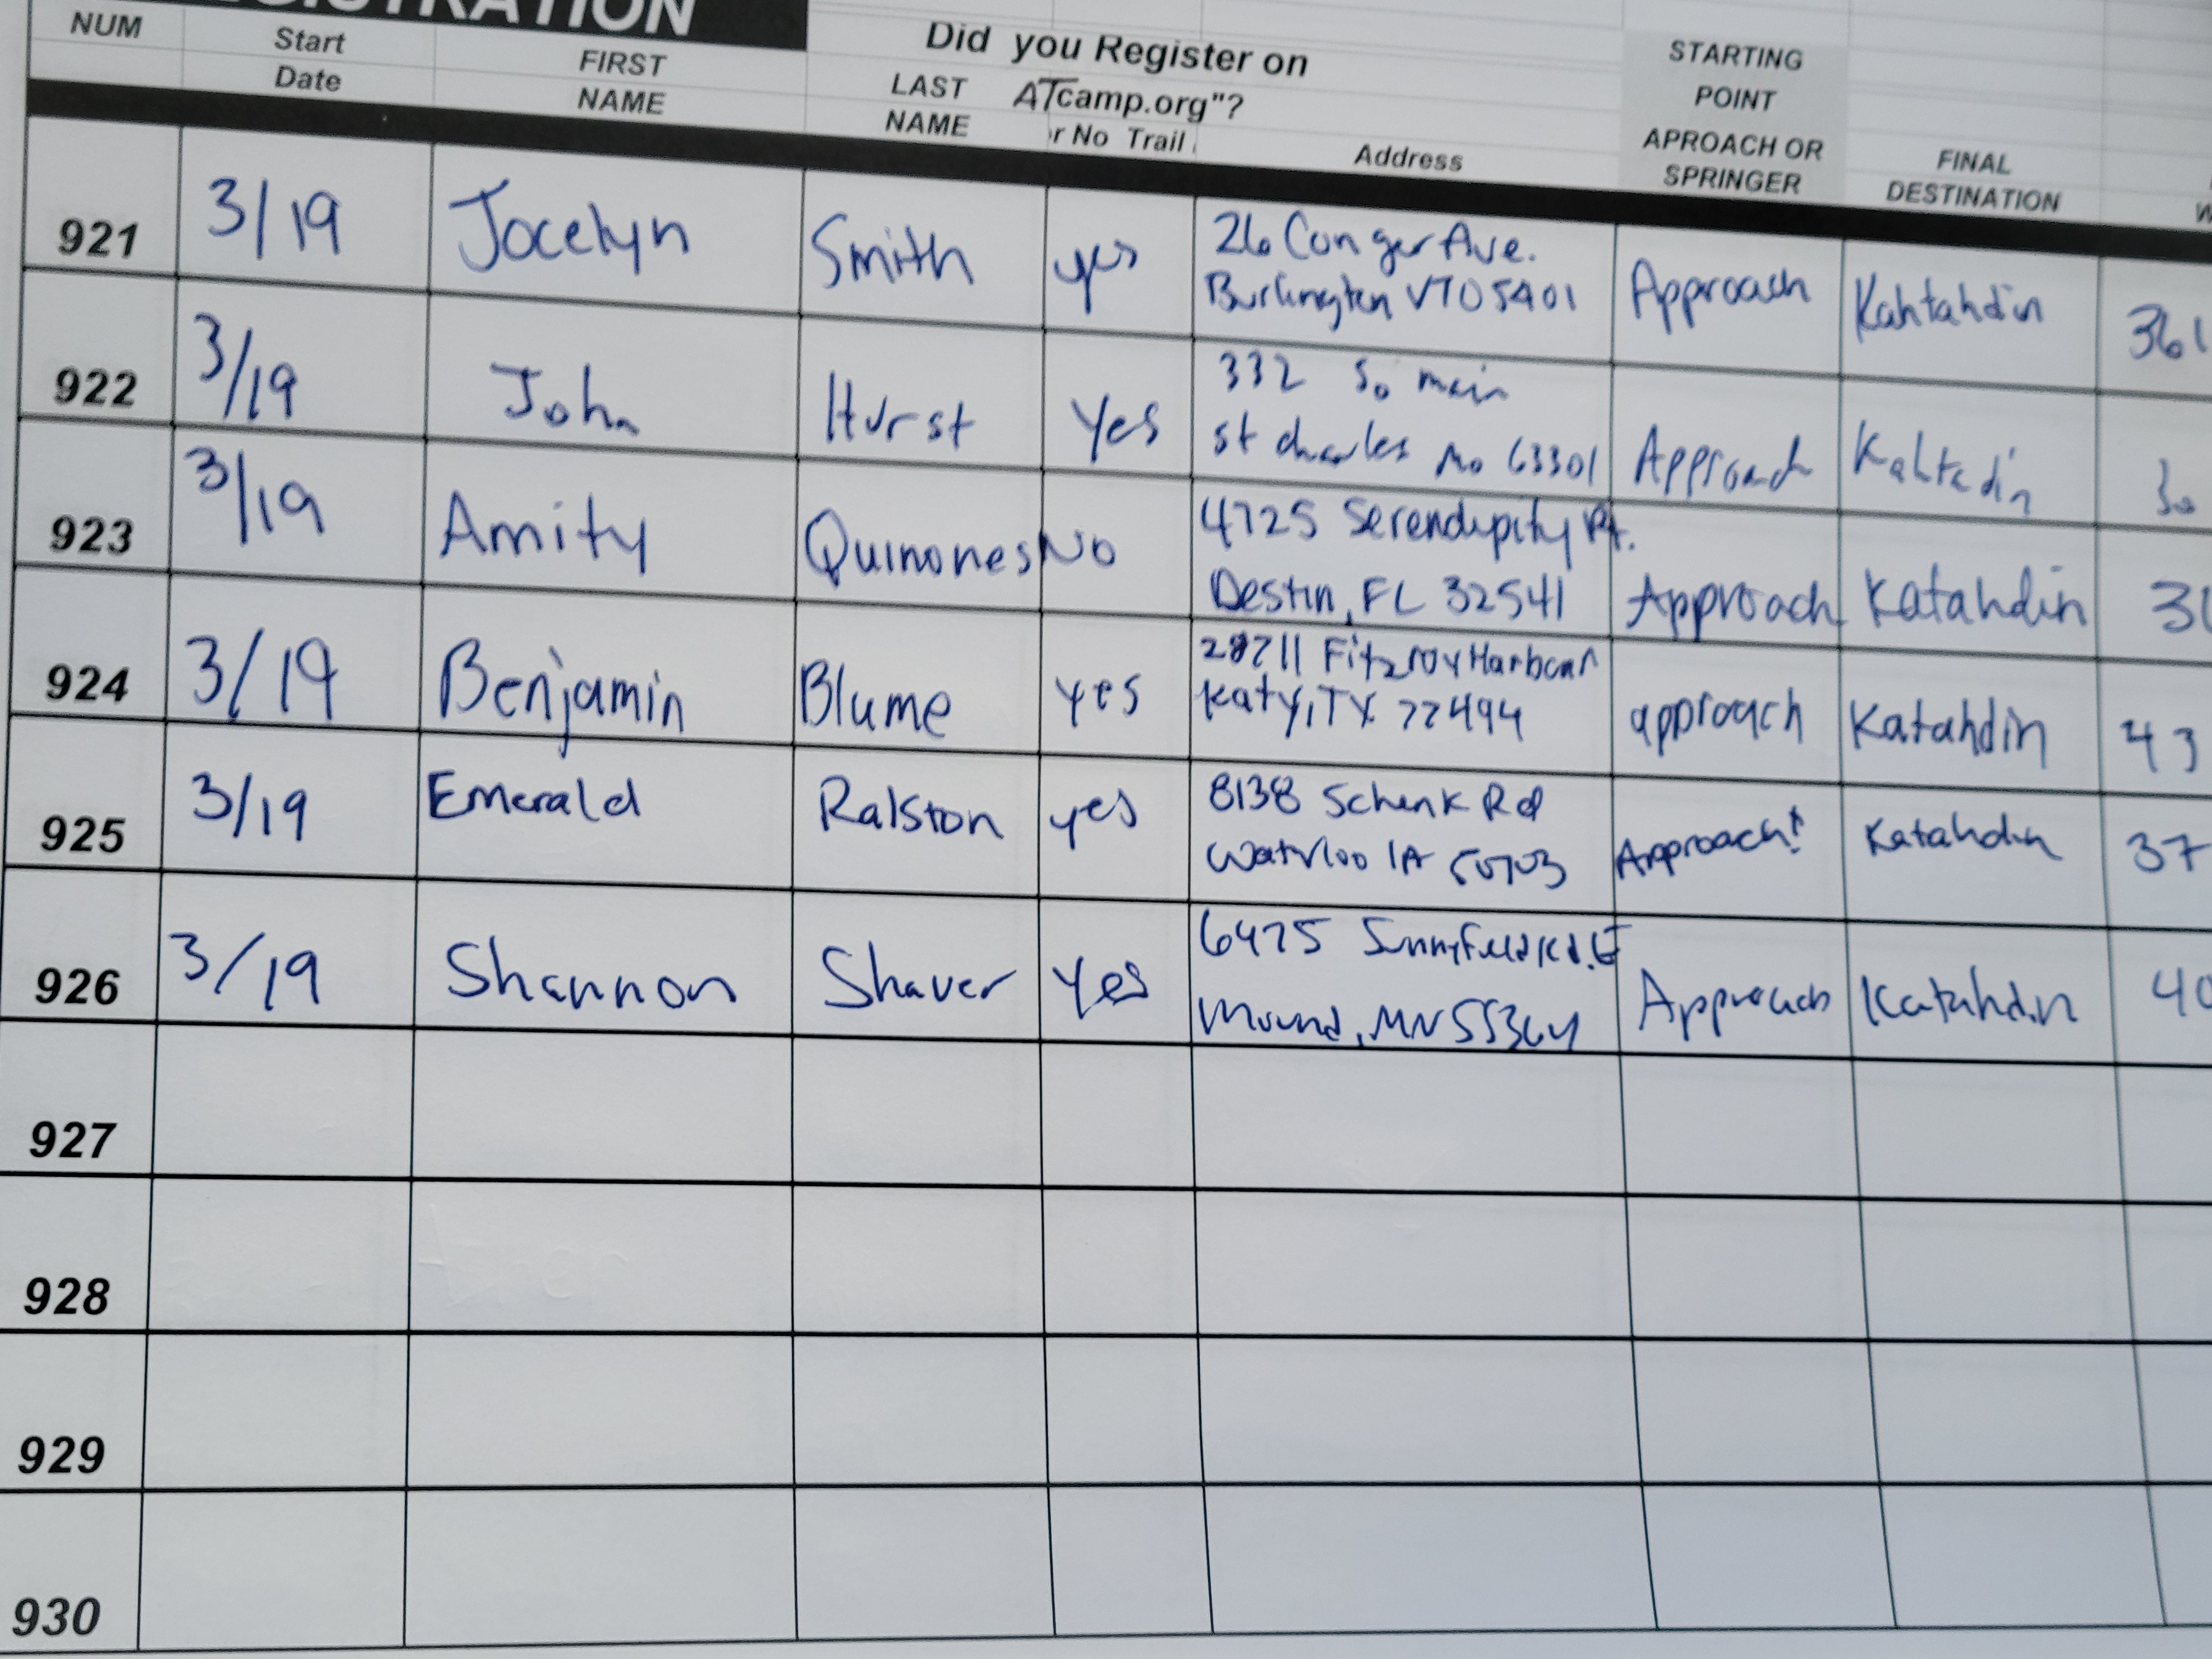 REGISTRATION
NUM
Start
Date
FIRST
NAME
Did you Register on
LAST ATcamp.org"?
NAME r No Trail
Address
STARTING
POINT
APROACH OR
SPRINGER
FINAL
DESTINATION
W
921 3/19 Jocelyn Smith yes 26 Conger Ave. Approach Kahtahdin 361
Burlington VT 05401
922 3/19 John Hurst Yes 332 So main Approach Kahtadin
st charles Mo 63301
923 3/19 Amity Quinones No 4725 Serendipity Pt. Approach Katahdin 3
Destin, FL 32541
924 3/19 Benjamin Blume yes 28711 Fitzroy Harbour approach Katahdin 43
Katy, TX 77494
925 3/19 Emerald Ralston yes 8138 Schenk Rd Approach! Katahdin 37
Waterloo IA 50703
926 3/19 Shannon Shaver Yes 6475 Sunnyfield Rd. E Approach Katahdin 40
Mound, MN 55364
927
928
929
930